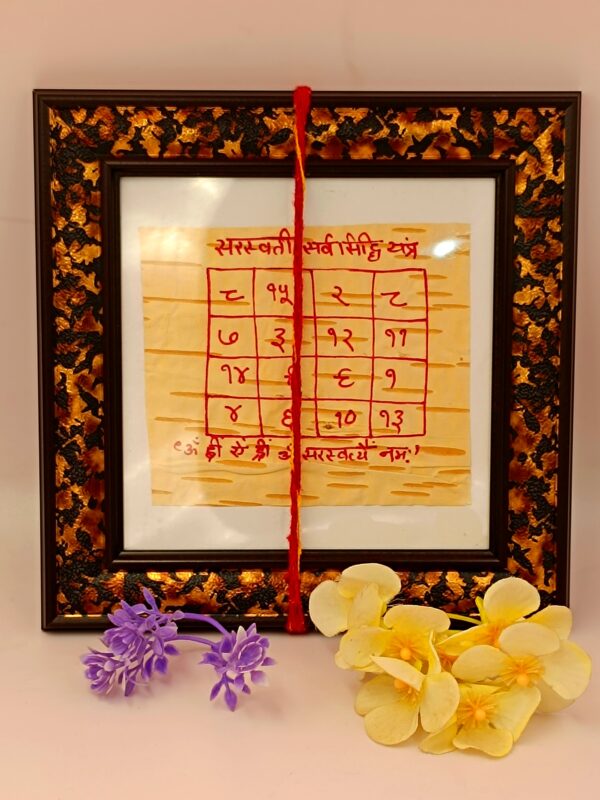 सरस्वती सर्व सिद्धि यंत्र
८ १५ २ ८
७ ३ १२ ११
१४ ६ १
४ ६ १० १३
‘ॐ ह्रीं ऐं ह्रीं ॐ सरस्वत्यै नमः’